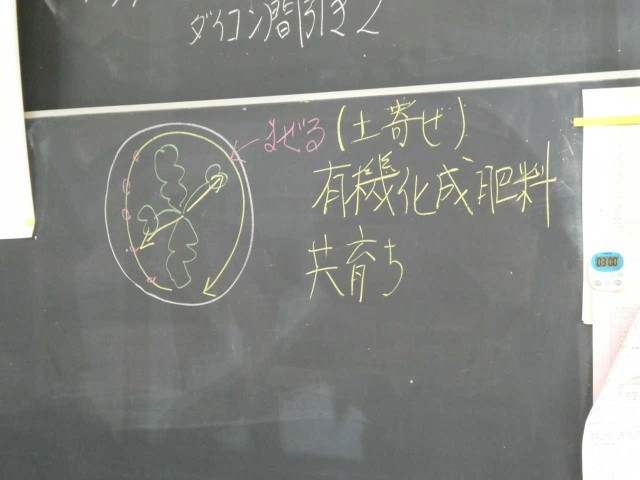 ダイコン間引き2
まぜる (土寄せ)
有機化成肥料
共育ち
03:00